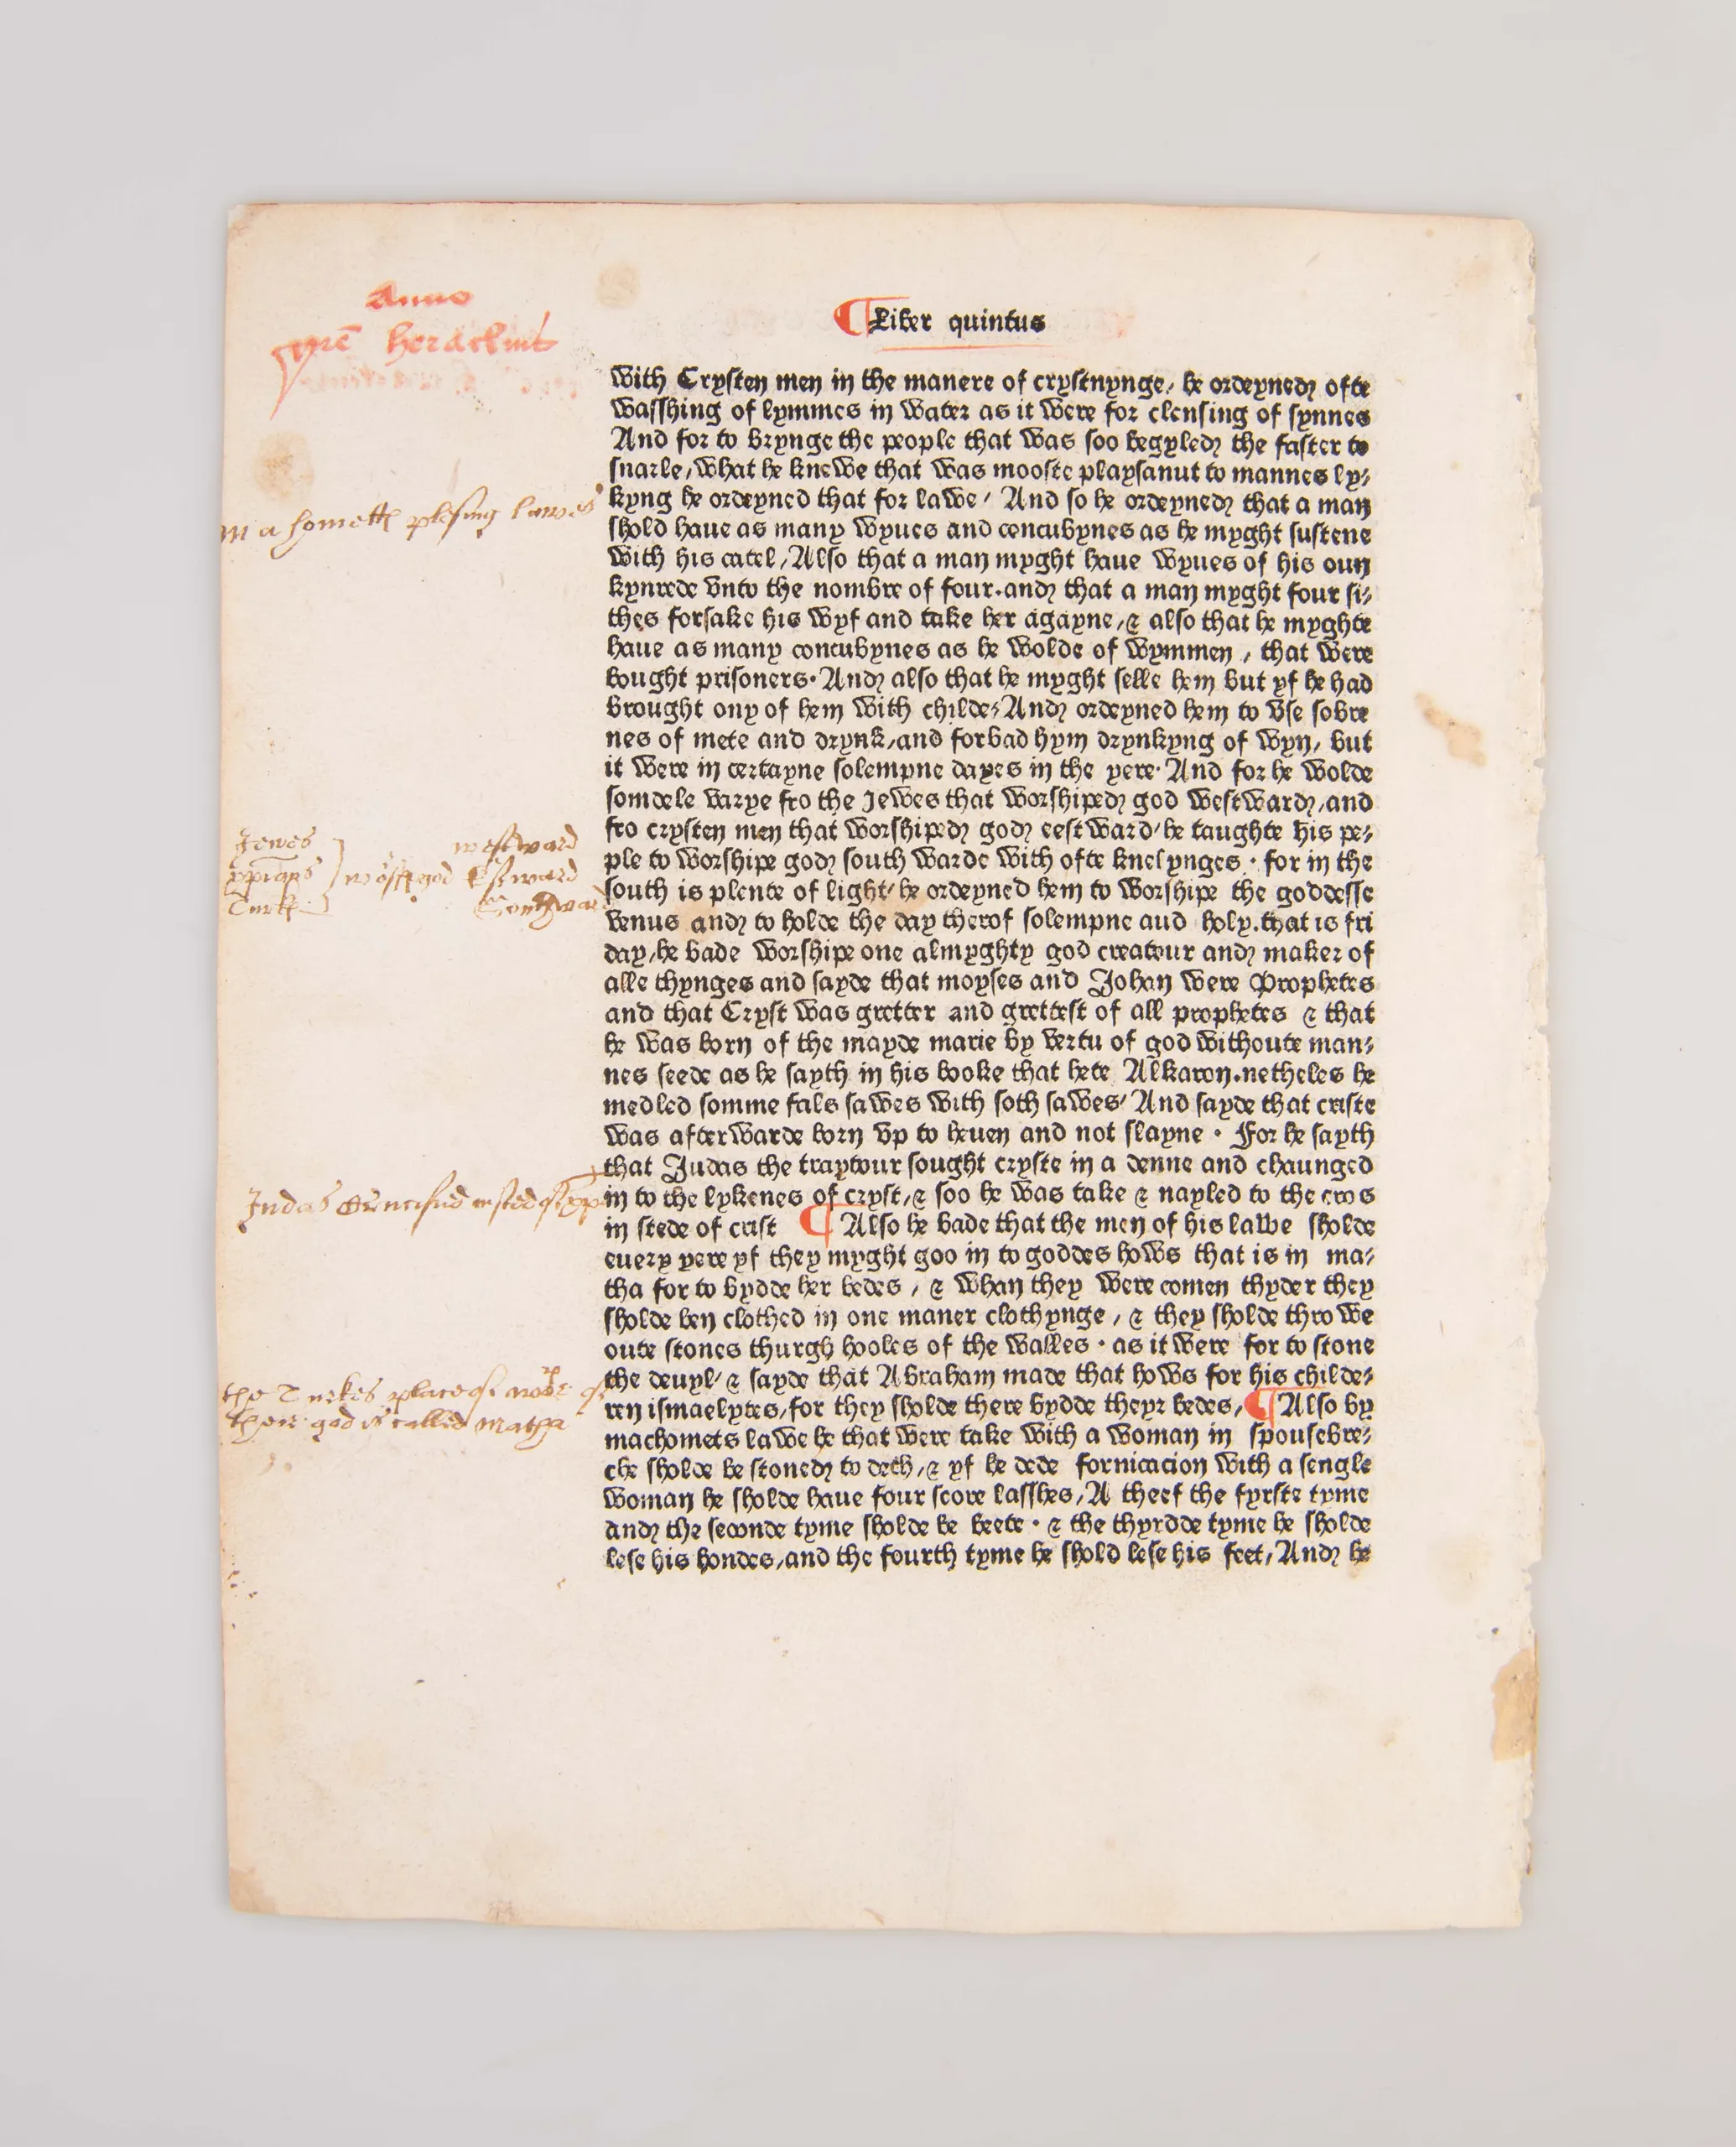 Anno
heraclius
Liber quintus
with Crysten men in the manere of crystnynge, he ordeyned ofte
wasshing of lymmes in water as it were for clensing of synnes
And for to brynge the people that was soo begyled the faster to
snarle, what he knewe that was mooste playsanut to mannes ly⸗
kyng he ordeyned that for lawe, And so he ordeyned that a man
shold haue as many wyues and concubynes as he myght sustene
with his catel, Also that a man myght haue wyues of his oun
kynrede vnto the nombre of four. and that a man myght four si⸗
thes forsake his wyf and take her agayne, & also that he myghte
haue as many concubynes as he wolde of wymmen, that were
bought prisoners. And also that he myght selle hem but yf he had
brought ony of hem with childe, And ordeyned hem to vse sobre
nes of mete and drynk, and forbad hym drynkyng of wyn, but
it were in certayne solempne dayes in the yere. And for he wolde
somdele varye fro the Jewes that worshiped god westward, and
fro crysten men that worshiped god eestward, he taughte his pe⸗
ple to worshipe god south warde with ofte knelynges. for in the
south is plente of light, he ordeyned hem to worshipe the goddesse
venus and to holde the day therof solempne aud holy. that is fri
day, he bade worshipe one almyghty god creatour and maker of
alle thynges and sayde that moyses and Johan were Prophetes
and that Cryst was gretter and grettest of all prophetes & that
he was born of the mayde marie by vertu of god withoute man⸗
nes seede as he sayth in his booke that hete Alkaron. netheles he
medled somme fals sawes with soth sawes, And sayde that criste
was afterwarde born vp to heuen and not slayne. For he sayth
that Judas the traytour sought cryste in a denne and chaunged
in to the lykenes of cryst, & soo he was take & nayled to the cros
in stede of crist ¶ Also he bade that the men of his lawe sholde
euery yere yf they myght goo in to goddes hows that is in ma⸗
tha for to bydde her bedes, & whan they were comen thyder they
sholde ben clothed in one maner clothynge, & they sholde throwe
oute stones thurgh hooles of the walles. as it were for to stone
the deuyl, & sayde that Abraham made that hows for his childe⸗
ren ismaelytes, for they sholde there bydde theyr bedes, ¶ Also by
machomets lawe he that were take with a woman in spousebre⸗
che sholde be stoned to deth, & yf he dede fornicacion with a sengle
woman he sholde haue four score lasshes, A theef the fyrste tyme
and the seconde tyme sholde be beete. & the thyrdde tyme he sholde
lese his hondes, and the fourth tyme he shold lese his feet, And he
mahomett plesing lawes
Jewes westward
god Estward
Turk Southward
Judas
the Turkes place of
their god is called matha